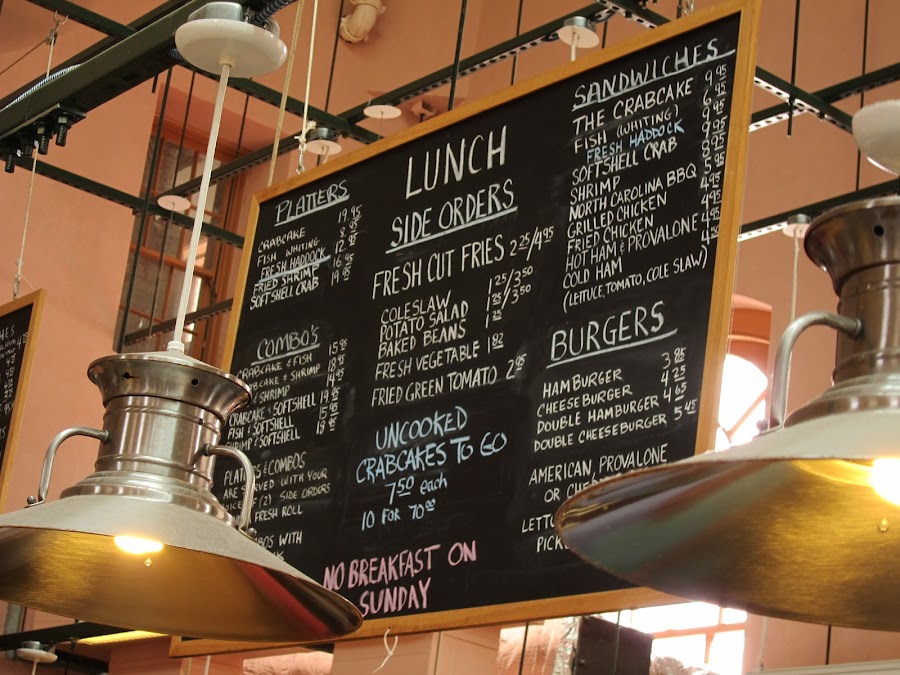 PLATTERS
CRABCAKE 19.95
FISH WHITING 8.95
FRESH HADDOCK 12.95
FRIED SHRIMP 16.95
SOFT SHELL CRAB 19.95
COMBO'S
CRABCAKE & FISH 15.95
CRABCAKE & SHRIMP 18.95
& SHRIMP 14.95
CRABCAKE & SOFTSHELL 19.95
FISH & SOFTSHELL 15.95
SHRIMP & SOFTSHELL 18.95
& COMBOS
ARE SERVED WITH YOUR
OF (2) SIDE ORDERS
FRESH ROLL
WITH
LUNCH
SIDE ORDERS
FRESH CUT FRIES 2.25/4.95
COLESLAW 1.25/3.50
POTATO SALAD 1.25/3.50
BAKED BEANS 1.25
FRESH VEGETABLE 1.82
FRIED GREEN TOMATO 2.95
UNCOOKED
CRABCAKES TO GO
7.50 each
10 FOR 70.00
NO BREAKFAST ON
SUNDAY
SANDWICHES
THE CRABCAKE 9.95
FISH (WHITING) 6.95
FRESH HADDOCK 9.95
SOFTSHELL CRAB 9.95
SHRIMP 8.95
NORTH CAROLINA BBQ 5.95
GRILLED CHICKEN 4.95
FRIED CHICKEN 4.95
HOT HAM & PROVALONE 4.95
COLD HAM 4.50
(LETTUCE, TOMATO, COLE SLAW)
BURGERS
HAMBURGER 3.85
CHEESEBURGER 4.25
DOUBLE HAMBURGER 4.65
DOUBLE CHEESEBURGER 5.45
AMERICAN, PROVALONE
OR